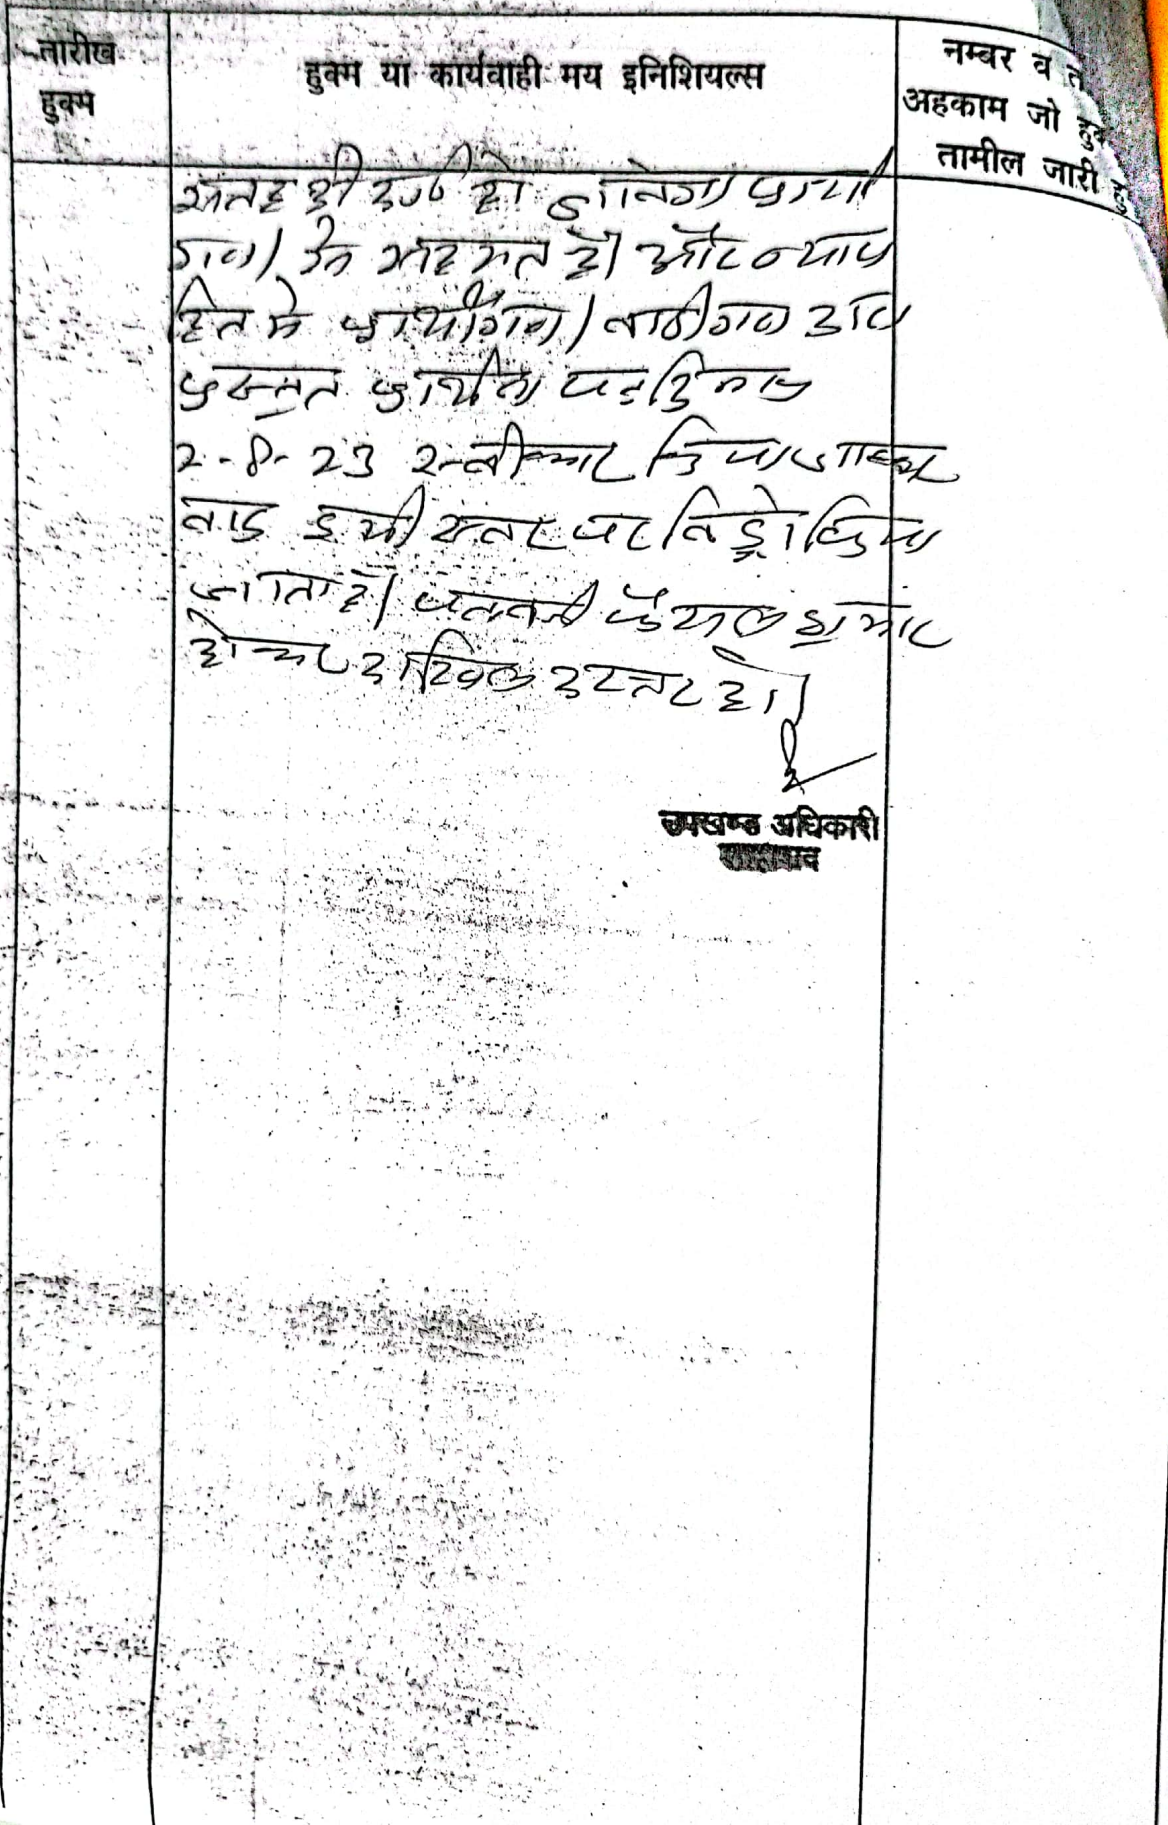 तारीख
हुक्म
हुक्म या कार्यवाही मय इनिशियल्स
नम्बर व
अहकाम जो
तामील जारी
ही दर्ज हो प्रार्थी
गण के सहमत है। और न्याय
हित में प्रार्थीगण / वादीगण
प्रस्तुत प्रार्थना पत्र दिनांक
2-8-23 स्वीकार किया जाकर
वाद इसी स्तर पर विड्रो किया
जाता है। पत्रावली फैसल शुमार
होकर दाखिल दफ्तर हो।
उपखण्ड अधिकारी